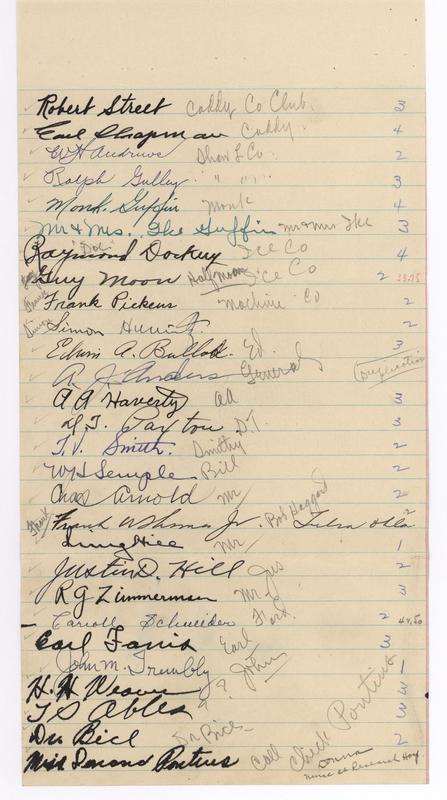 Robert Street Caddy Co Club. 3
Earl Chapman Caddy. 4
W H Andrews Show L Co. 2
Ralph Gulley " " " 3
Monk Guffin Monk 4
Mr & Mrs. Ike Guffin Mr & Mrs Ike 3
Raymond "Doc" Dockery Ice Co 4
Guy Moon Half Moon Ice Co 2 23.75
Frank Pickens Machine Co 2
Simon 2
Edwin A. Bullock. Ed. 3
A. J. Anders General Duplication
A A Haverty AA 3
Payton D.T. 3
T. V. Smith. Smithy 2
W H Semple Bill 2
Chas Arnold Mr 2
Frank Frank Jr. Bob Haggard Tulsa Okla 2
Mr 1
Justin D. Hill Jus 2
R G Zimmerman Mr 3
Carroll Schneider Ford. 2 47.50
Earl Farris Earl 3
John M. Trumbly John 1
H. H. Weaver ? 3
T S Ables ? 3
Dr. Bice Dr Bice 2
Miss Pontius Call Check Pontius
Donna
Nurse at Research Hosp.